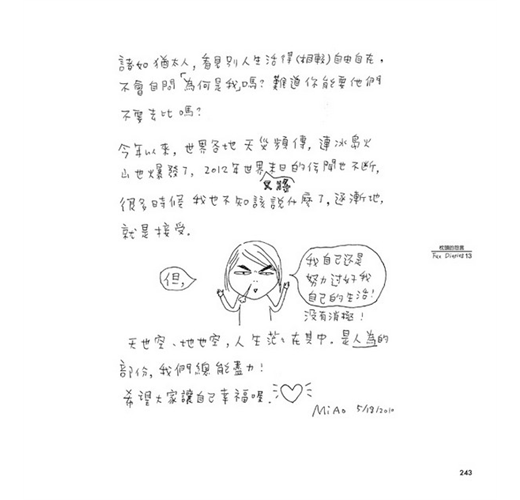 諸如猶太人，看見別人生活得(相較)自由自在，
不會自問「為何是我」嗎？難道你能要他們
不要去比嗎？
今年以來，世界各地天災頻傳，連冰島火
山也爆發了，2012年世界末日的傳聞也不斷，
又將
很多時候我也不知該說什麼了，逐漸地，
就是接受．
但，
我自己還是
努力過好我
自己的生活！
沒有消極！
天也空、地也空，人生茫茫在其中．是人為的
部份，我們總能盡力！
希望大家讓自己幸福喔．
MiAo 5/18/2010
13
243